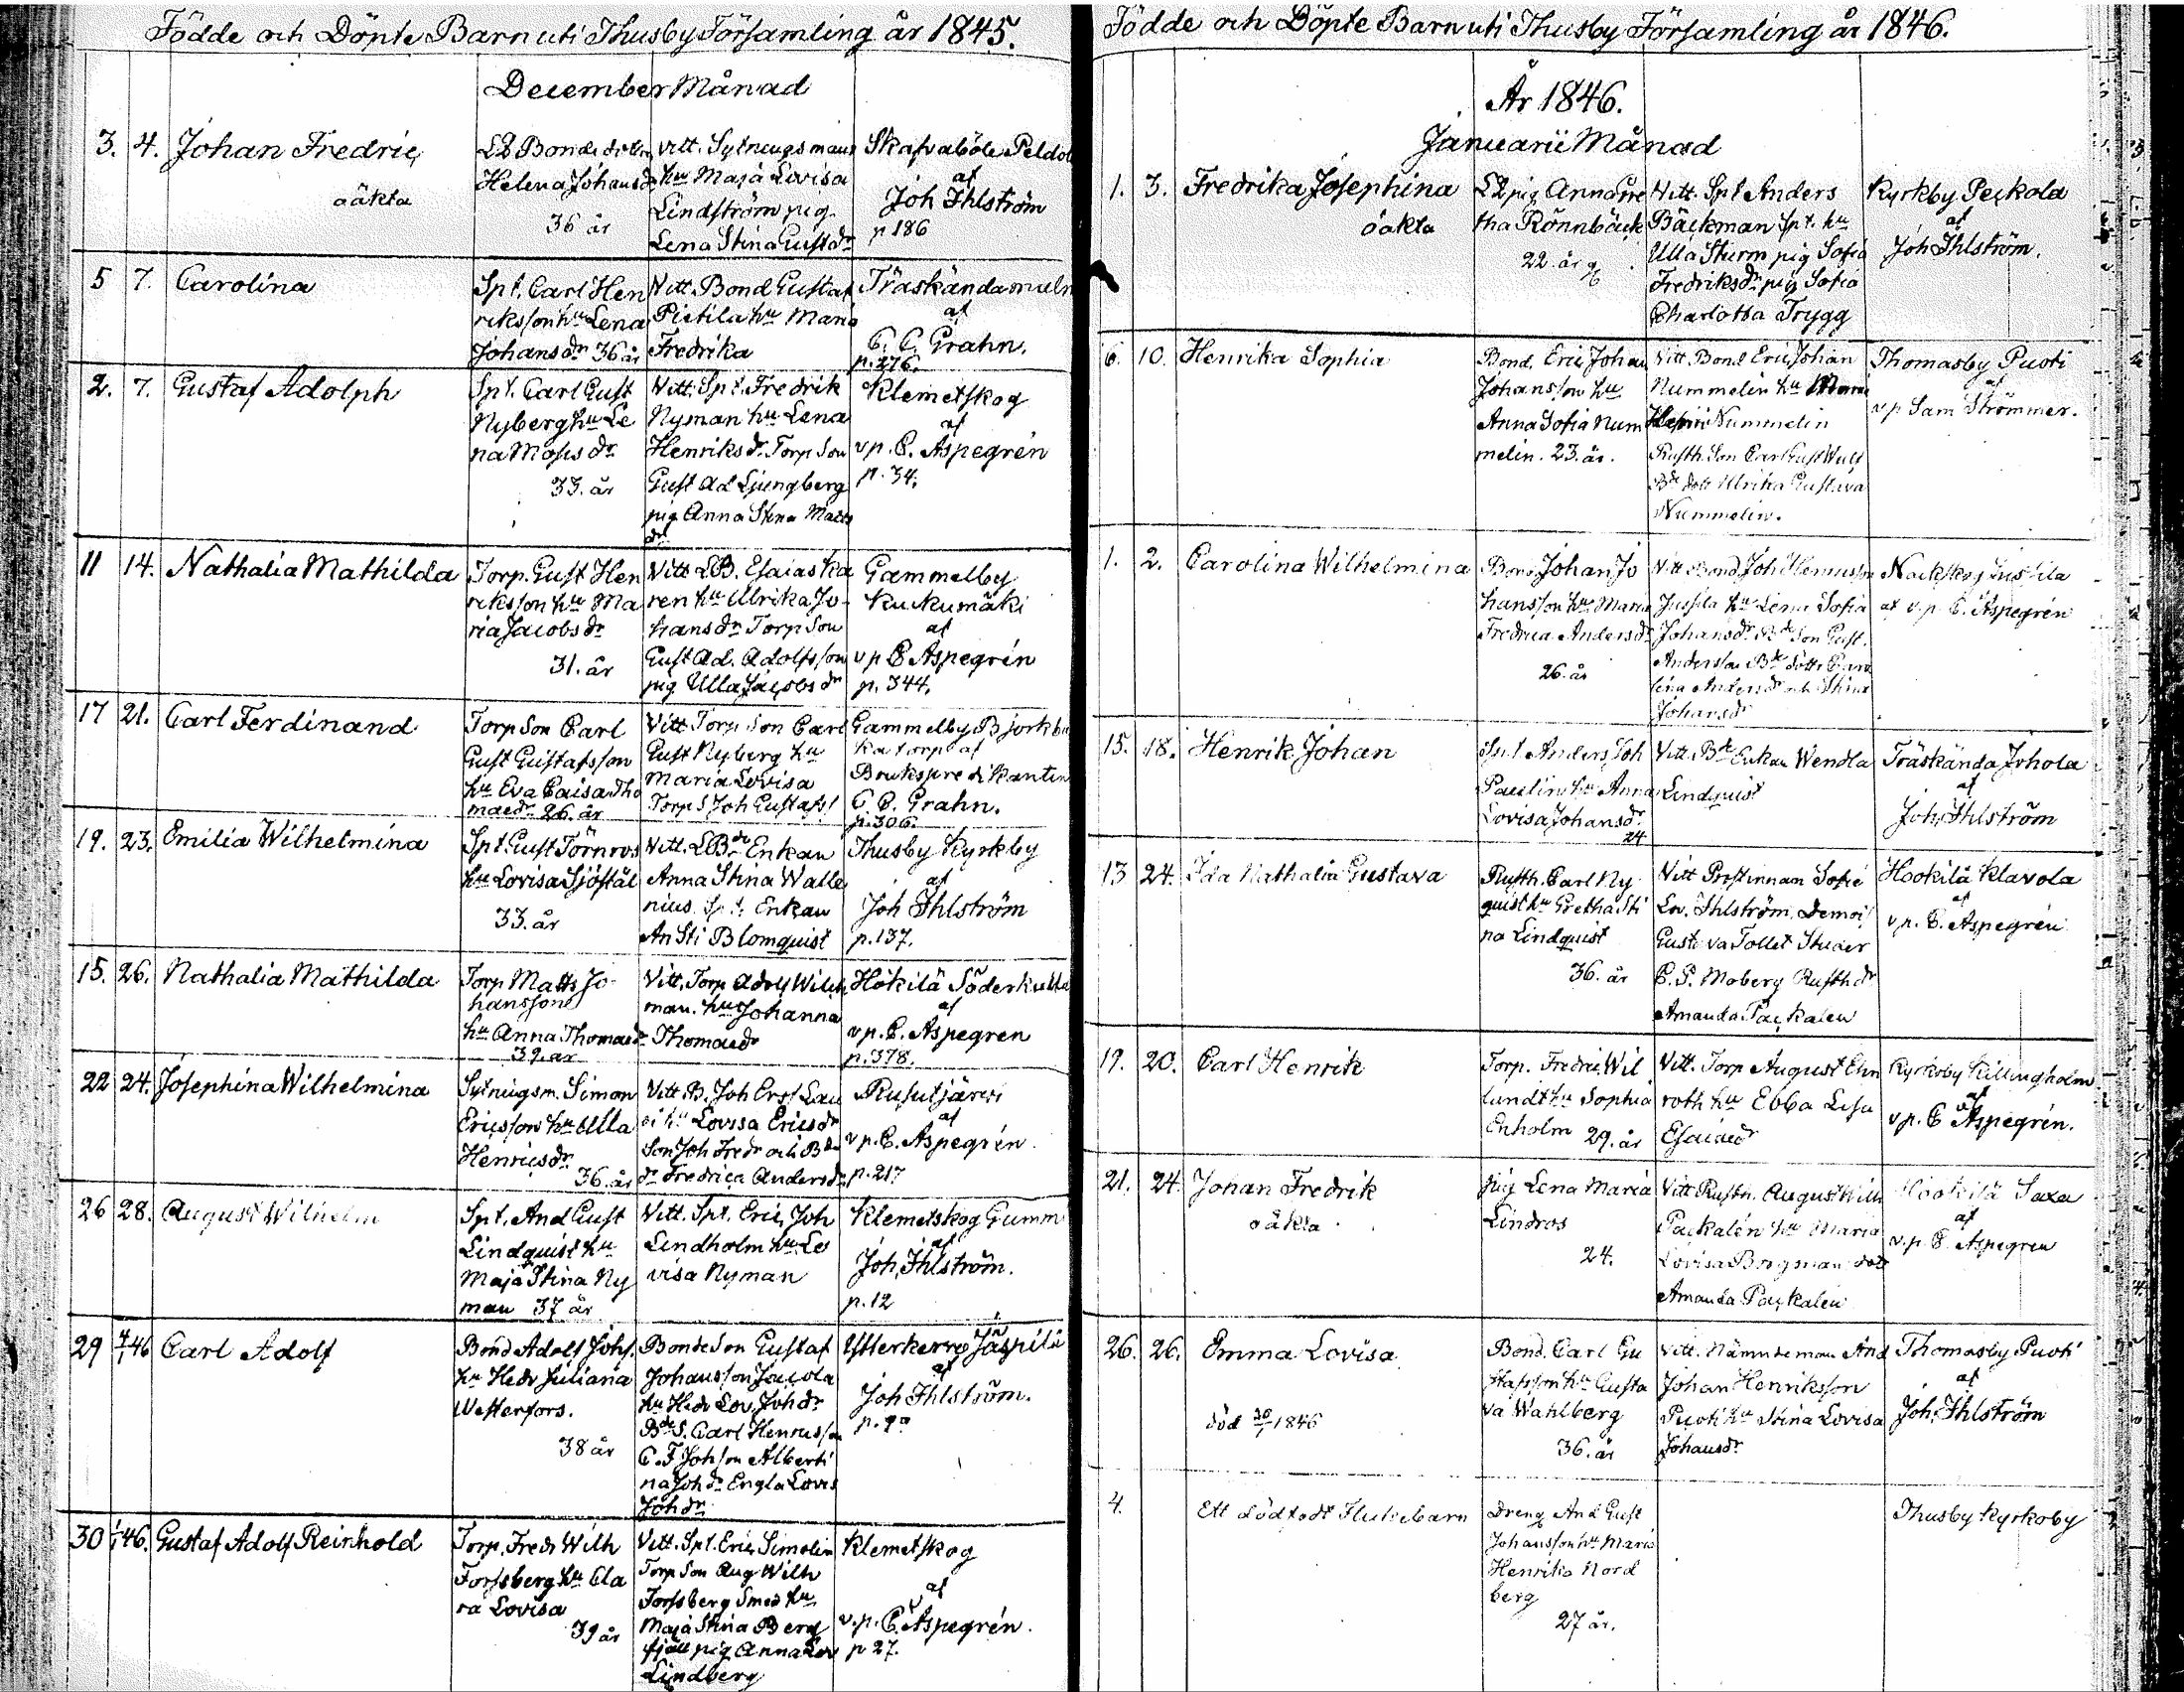 Födde och Döpte Barn uti Thusby Församling år 1845.
December Månad
3. 4. Johan Fredric
oäkta
Helena Johansdr
36 år
vitt. Sytningsman
hu Maja Lovisa
Lindström pig.
Lena Stina Gustdr
Skafvaböle
af
Joh Ihlström
p 186
5 7. Carolina
Spt. Carl Hen
riksson hu Lena
Johansdr 36 år
Vitt. Bond Gustaf
Pietila hu Maria
Fredrika
Träskända
af
C. C. Grahn.
p. 276.
2. 7. Gustaf Adolph
Spt. Carl Gust
Nyberg hu Le
na Mosisdr
33. år
Vitt. Spt. Fredrik
Nyman hu Lena
Henriksdr. Torp Son
Gust Ad Ljungberg
pig Anna Stina Matts
dr
Klemetskog
af
vp. C. Aspegrén
p. 34.
11 14. Nathalia Mathilda
Torp. Gust Hen
riksson hu Ma
ria Jacobsdr
31. år
Vitt LB. Esaias Ka
ren hu Ulrika Jo-
hansdr Torp Son
Gust Ad. Adolfsson
pig Ulla Jacobsdr
Gammelby
Kukumäki
af
v p C Aspegrén
p. 344.
17 21. Carl Ferdinand
Torp Son Carl
Gust Gustafsson
hu Eva Caisa Tho
maedr 26. år
Vitt Torp Son Carl
Gust Nyberg hu
Maria Lovisa
Torp S Joh Gustafs
Gammelby Björkba
ka torp af
Brukspredikanten
C. C. Grahn.
p. 306.
19. 23. Emilia Wilhelmina
Spt. Gust Törnros
hu Lovisa Sjöstål
33. år
Vitt. LBde Enkan
Anna Stina Walle
nius. Spt. Enkan
An Sti Blomquist
Thusby Kyrkby
af
Joh Ihlström
p. 137.
15. 26. Nathalia Mathilda
Torp Matts Jo-
hansson
hu Anna Thomaedr
39. år
Vitt. Torp Adolf Wilh
man. hu Johanna
Thomaedr
Hökilä Söderkulla
af
v p. C. Aspegren
p. 378.
22 24. Josephina Wilhelmina
Sytningsm. Simon
Ericsson hu Ulla
Henricsdr
36. år
Lovisa Ericsdr
Son Joh Fredr och Bde
dr Fredrica Andersdr
Rusutjärvi
af
v p. C. Aspegrén.
p. 217
26 28. August Wilhelm
Spt. And Gust
Lindquist hu
Maja Stina Ny
man 37 år
Vitt. Spt. Eric Joh
Lindholm hu Lo
visa Nyman
Klemetskog Gumm
af
Joh. Ihlström.
p. 12
29 4/1 46 Carl Adolf
Bond Adolf Johs.
hu Hedv Juliana
Westerfors.
38 år
Bonde Son Gustaf
Johansson Jacola
hu Hedv Lov. Johdr
Bde S. Carl Henrisson
C. F Johsson Alberti
na Johdr Engla Lovis
Johdr
Jäspilä
af
Joh Ihlström.
30 1/1 46. Gustaf Adolf Reinhold
Torp. Fredr Wilh
Forssberg hu Cla
ra Lovisa
39 år
Vitt. Spt. Eric Simolin
Torp Son Aug Wilh
Forssberg Smed hu
Maja Stina Berg
fjäll pig Anna Lov
Lindberg
Klemetskog
af
v. p. C. Aspegrén.
p 27.
Födde och Döpte Barn uti Thusby Församling år 1846.
År 1846.
Januarii Månad
1. 3. Fredrika Josephina
oäkta
LB pig Anna Gre
tha Rönnbäck
22. år
Witt. Spt Anders
Bäckman Spt. hu
Ulla Sturm pig Sofia
Fredriksdr pig Sofia
Charlotta Trygg
Kyrkby Peckola
af
Joh Ihlström.
6. 10. Henrika Sophia
Bond. Eric Johan
Johansson hu
Anna Sofia Num
melin. 23. år.
Vitt. Bond Eric Johan
Nummelin hu Maria
Nummelin
Rusth. Son Carl Gust
Bde dott Ulrika Gustava
Nummelin.
Thomasby Puoti
af
v p Sam Strömmer.
1. 2. Carolina Wilhelmina
Bond Johan Jo
hansson hu Maria
Fredrica Andersdr
26. år
Vitt Bond Joh Henricsson
Jussila hu Lena Sofia
Johansdr. Bde Son Gust.
Andersson Bde dottr Caro
lina Andersdr och Stina
Johansdr
Nackskog Jussila
af v. p. C. Aspegrén
15. 18. Henrik Johan
Spt Anders Joh
Paulin hu Anna
Lovisa Johansdr.
24
Vitt. Bde Enkan Wendla
Lindquist
Träskända Johola
af
Joh. Ihlström
13 24. Ida Nathalia Gustava
Rusth. Carl Ny
quist hu Gretha Sti
na Lindquist
36. år
Vitt Prostinnan Sofie
Lov. Ihlström, Demois
Gustava Tollet Studer
C. S. Moberg Rusthdr
Amanda Packalen
Hookilä Klavola
af
v. p. C. Aspegrén
19. 20. Carl Henrik
Torp. Fredric Wil
lundt hu Sophia
Enholm 29. år
Vitt. Torp August Ehn
roth hu Ebba Lisa
Esaiaedr
Kyrkoby Killingholm
af
v p. C Aspegrén.
21. 24. Johan Fredrik
oäkta
pig Lena Maria
Lindros
24.
Vitt Rusth. August Wilh
Packalén hu Maria
Lovisa Borgman dott
Amanda Packalen
Hookilä Saxa
af
v. p. C. Aspegren
26. 26. Emma Lovisa
död 30/1 1846
Bond. Carl Gu
stafsson hu Gusta
va Wahlberg
36. år
Vitt. Nämndeman And
Johan Henriksson
Puoti hu Stina Lovisa
Johansdr
Thomasby Puoti
af
Joh. Ihlström
4. Ett dödfödt Flickebarn
Dreng And Gust
Johansson hu Maria
Henrika Nord
berg
27 år.
Thusby Kyrkoby